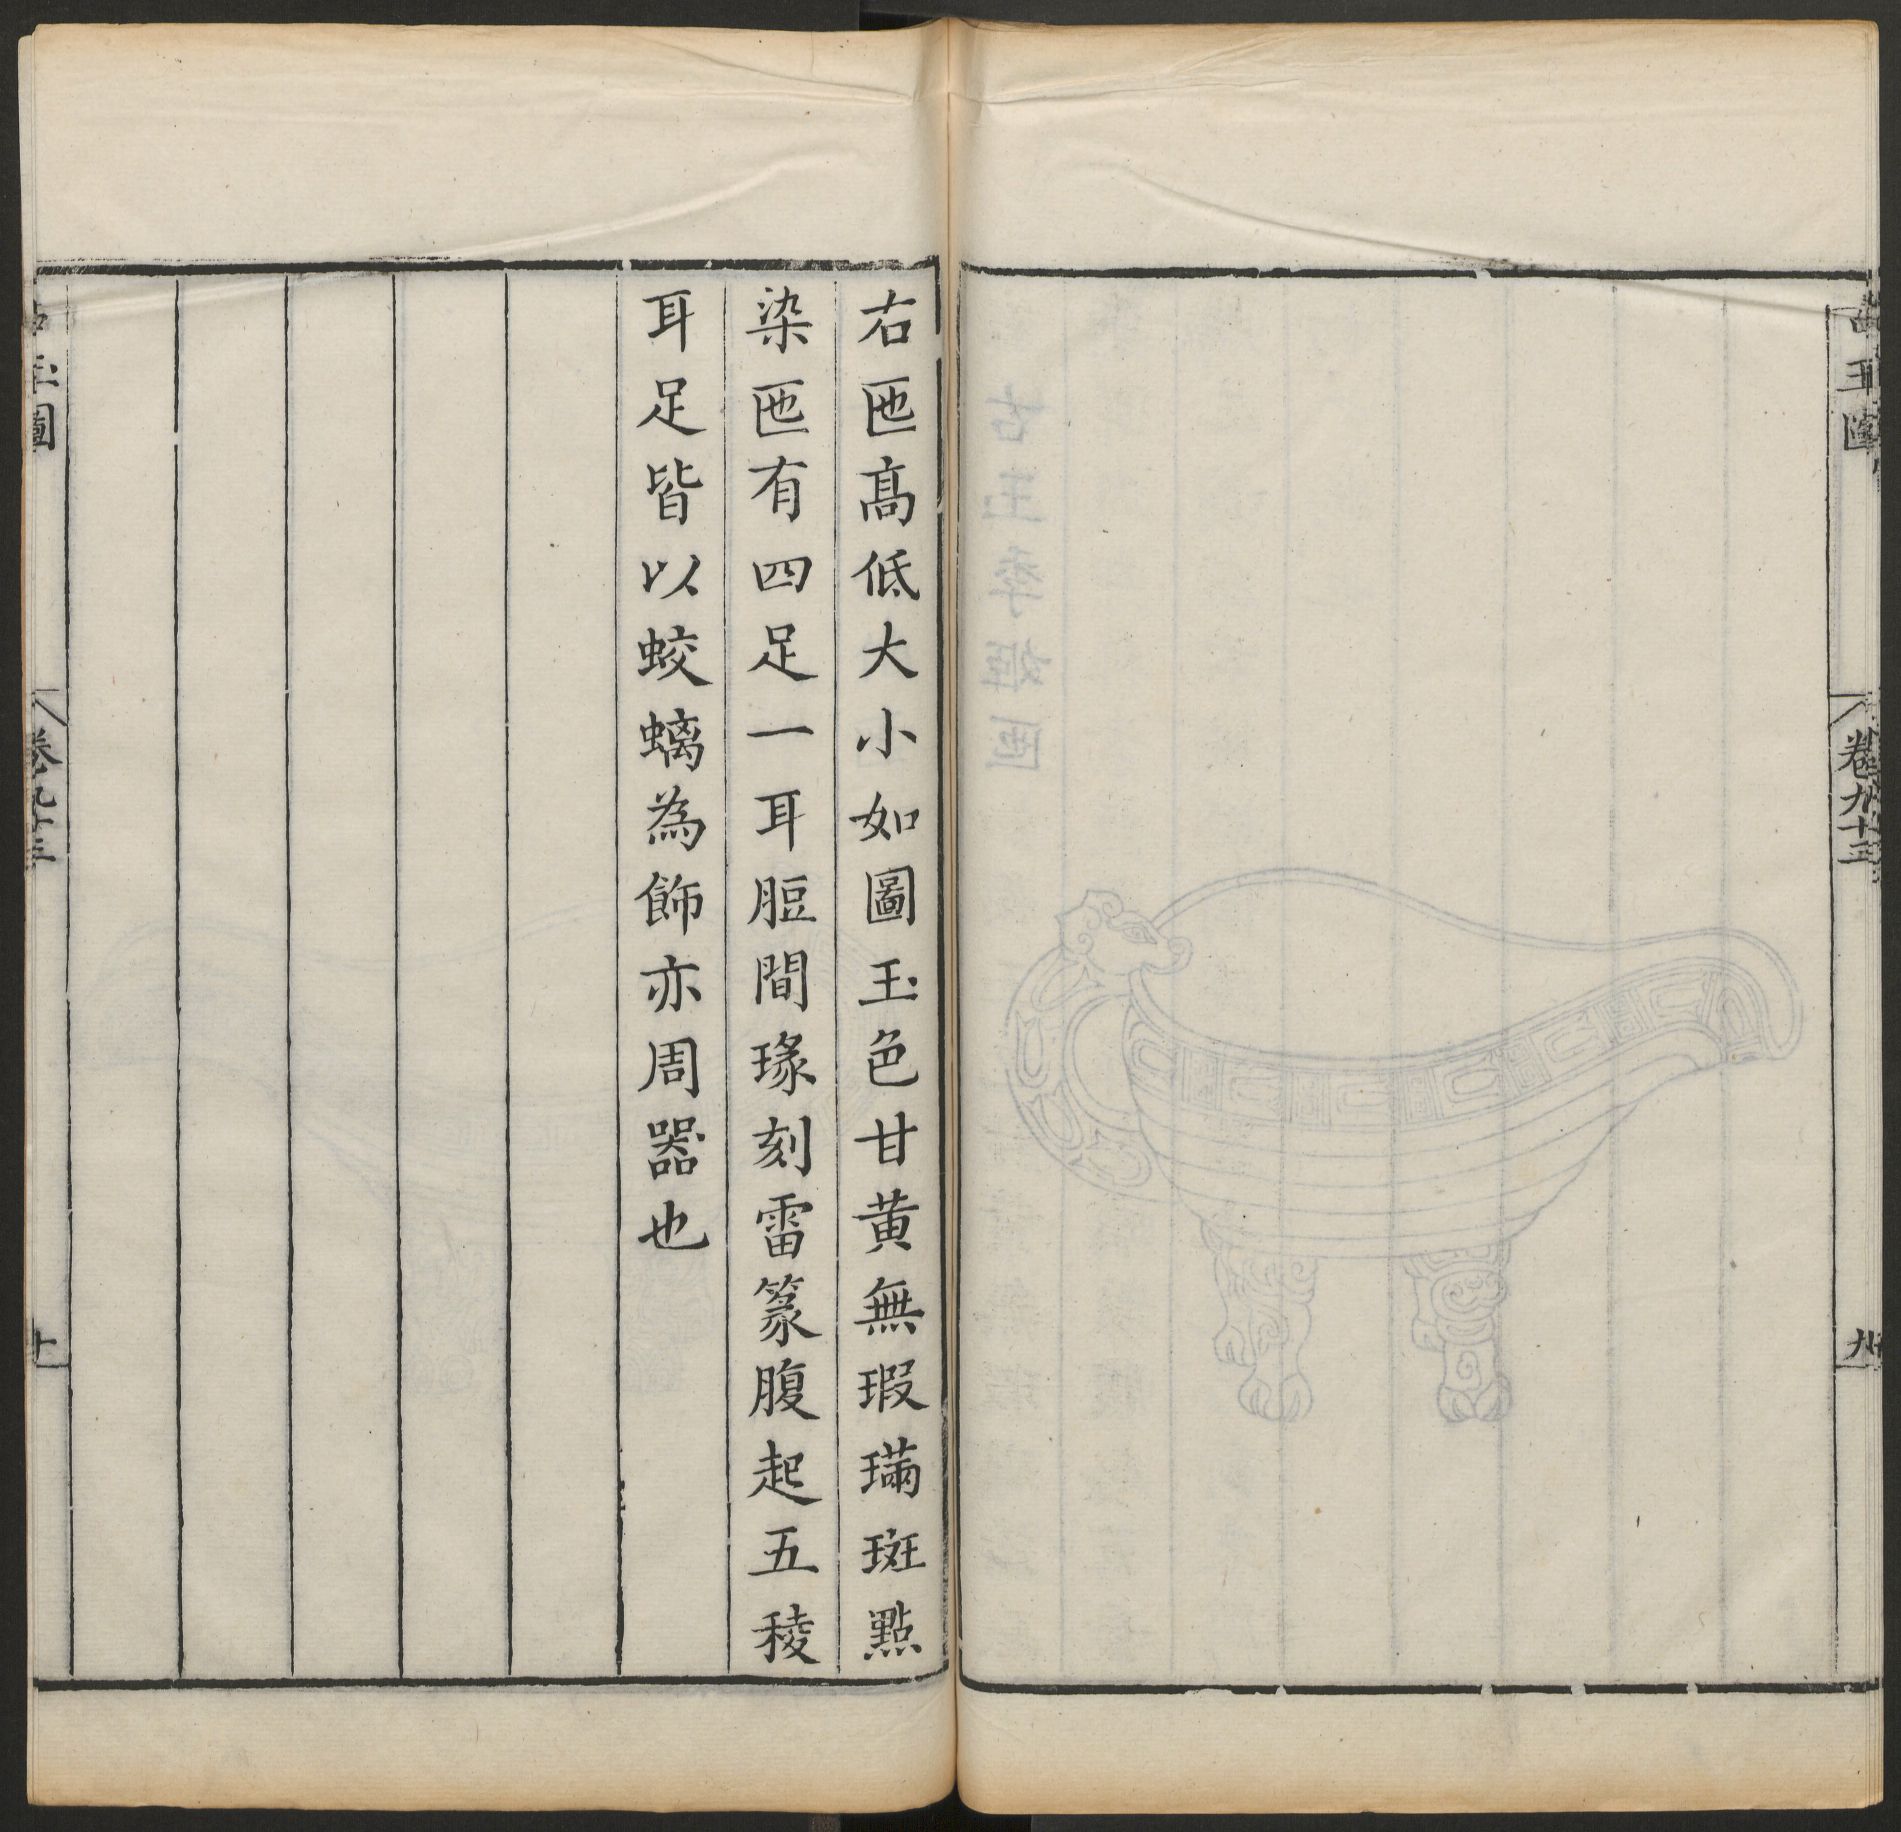 古玉圖
卷九十三
九
右匜高低大小如圖玉色甘黃無瑕璊斑點
染匜有四足一耳脰間瑑刻雷篆腹起五稜
耳足皆以蛟螭為飾亦周器也
卷九十三
十